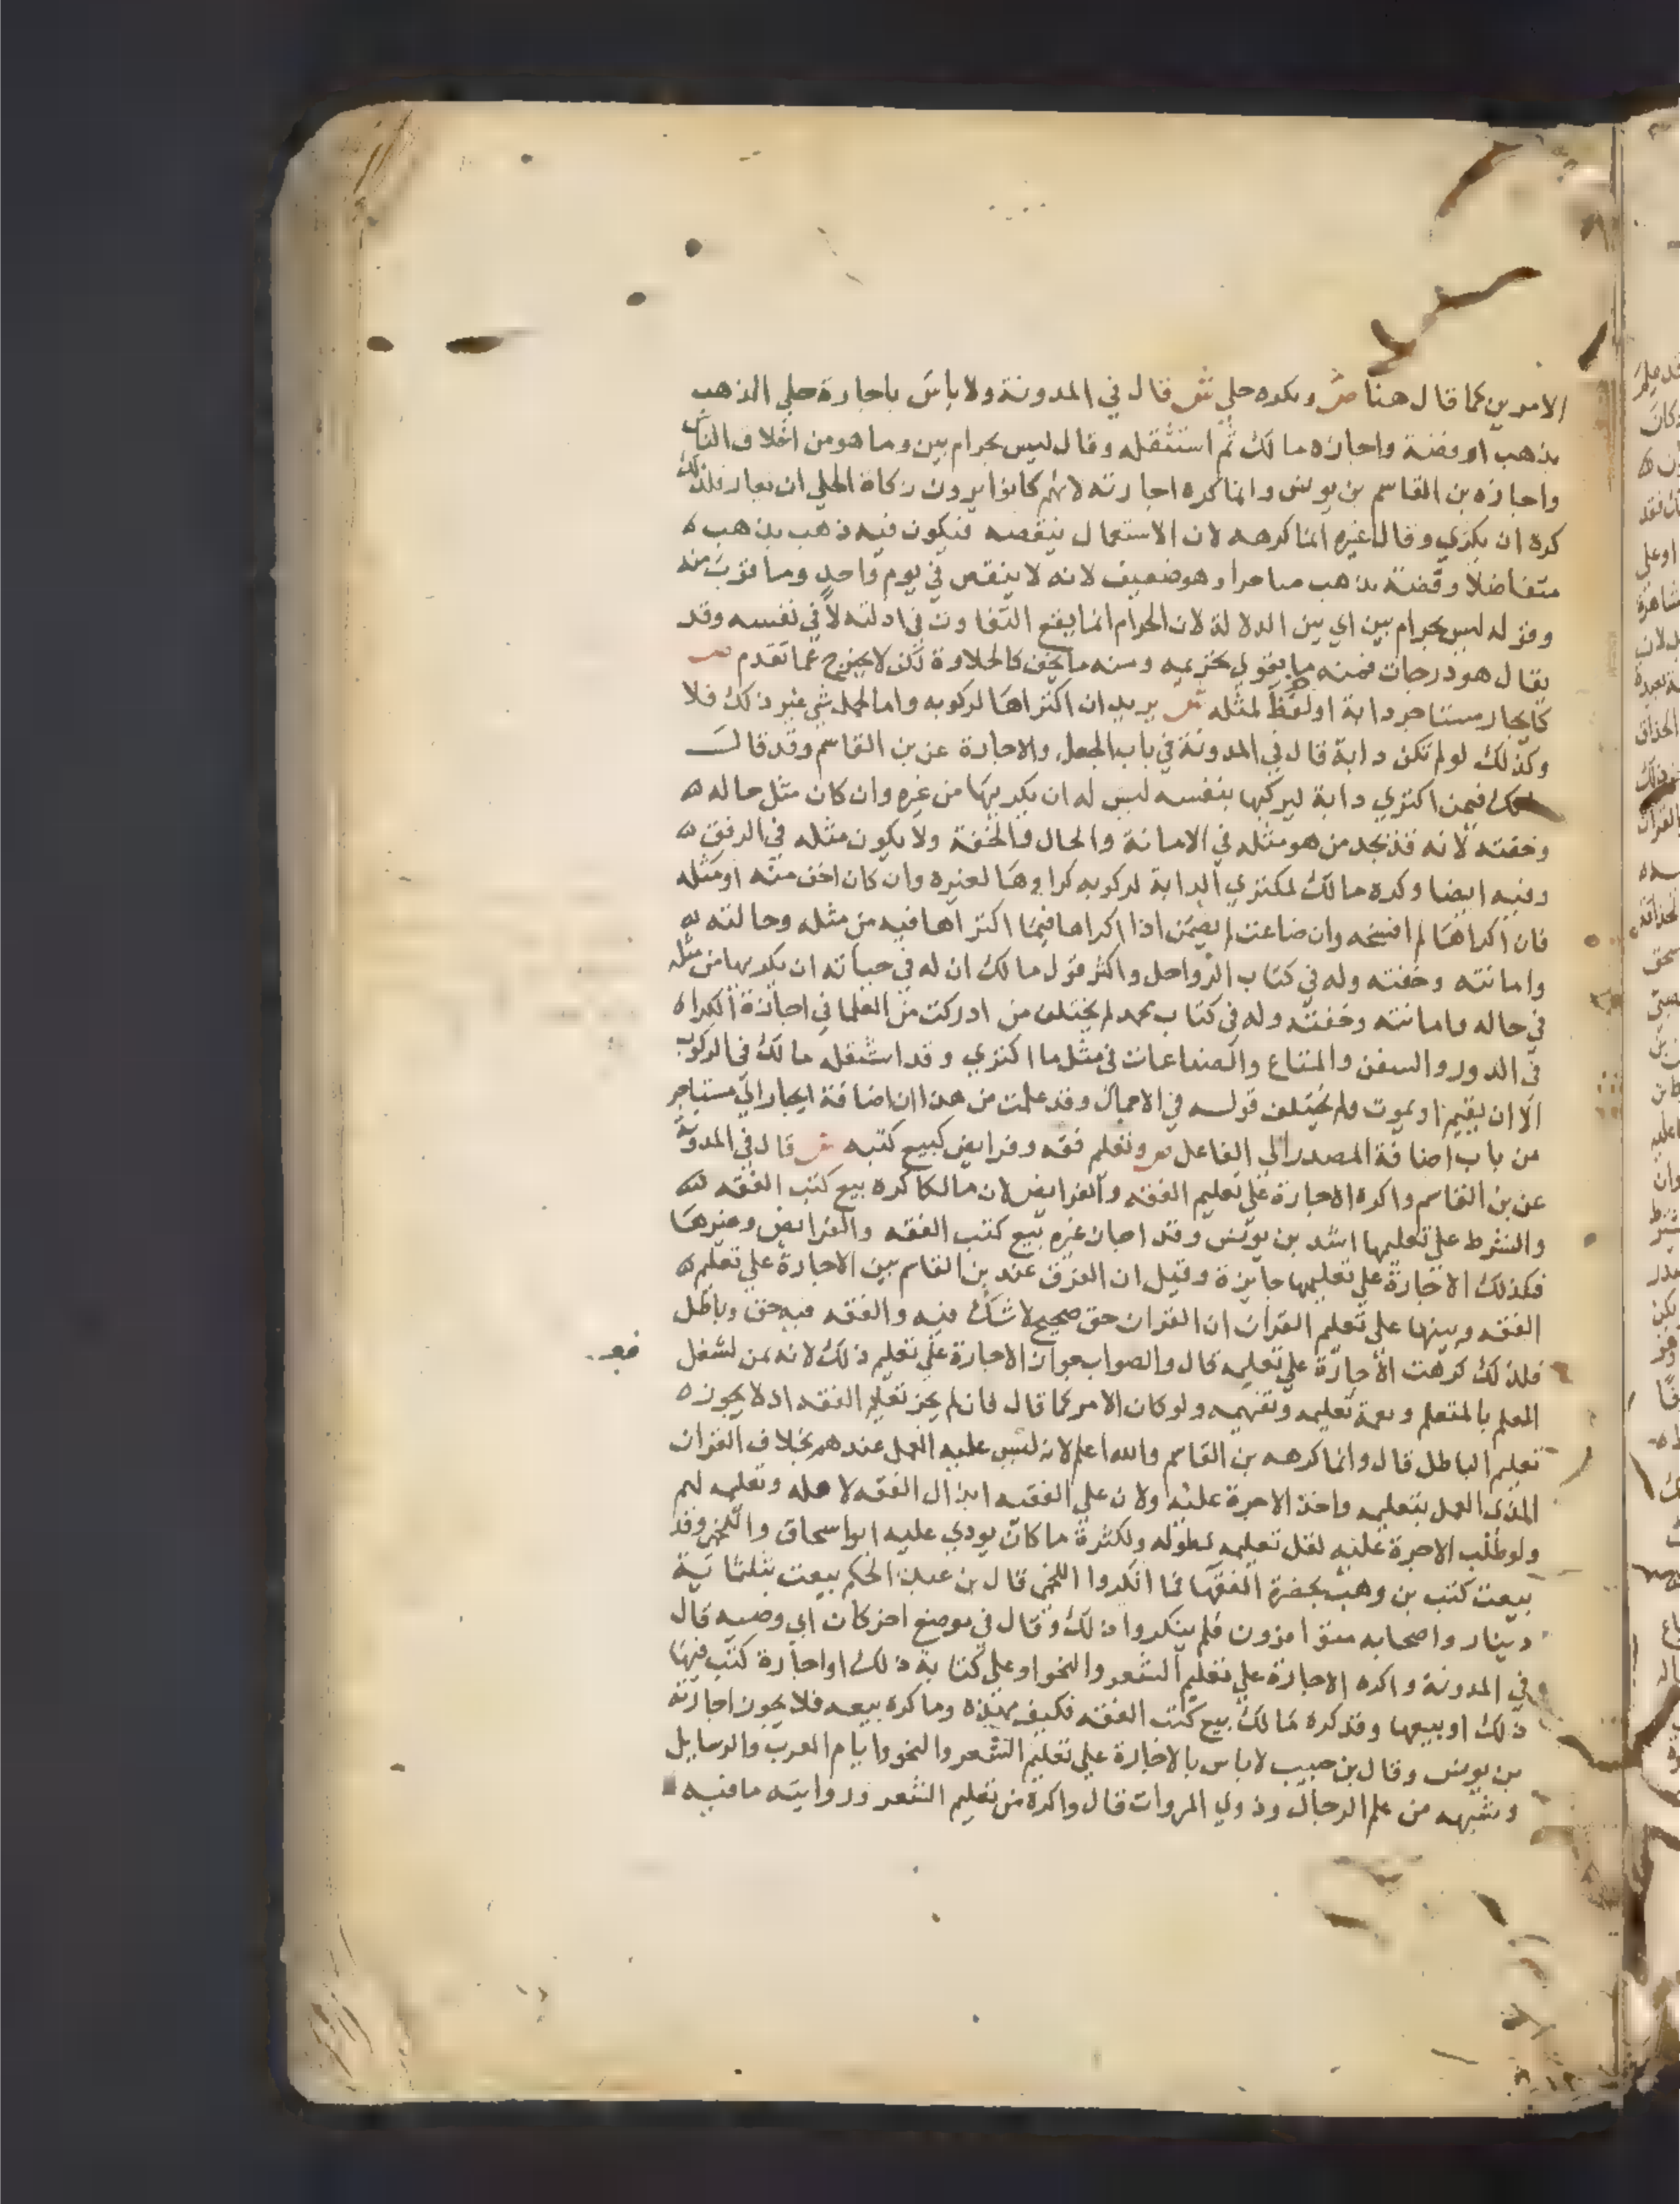 الامرين كما قال هنا ص وكره حلي ش قال في المدونة ولا باس باجارة حلي الذهب
بذهب او فضة واجازه مالك ثم استثقله وقال ليس بحرام بين وما هو من اخلاق الناس
واجازه بن القاسم بن يونس وانما كره اجارته لانهم كانوا يرون زكاة الحلي ان يعار فلذلك
كره ان يكري وقال غيره انما كرهه لان الاستعمال ينقصه فيكون فيه ذهب بذهب ه
متفاضلا وفضة بذهب مناجرا وهو ضعيف لانه لا ينقص في يوم واحد وما قرب منه
وقوله ليس بحرام بين اي بين الدلالة لان الحرام انما يقع التفاوت في ادلته لا في نفسه وقد
يقال هو درجات فمنه ما يقوي تحريمه ومنه ما يخف كالحلاوة لكن لا يخرج عما تقدم ص
كايجار مستاجر دابة او لفظ لمثله ش يريد ان اكتراها لركوبه واما لحمل شي غير ذلك فلا
وكذلك لو لم تكن دابة قال في المدونة في باب الجعل والاجارة عن بن القاسم وقد قال
مالك فيمن اكتري دابة ليركبها بنفسه ليس له ان يكريها من غيره وان كان مثل حاله ه
وخفته لانه قد يجد من هو مثله في الامانة والحال والخفة ولا يكون مثله في الرفق ه
وفيه ايضا وكره مالك لمكتري الدابة لركوبه كراوها لغيره وان كان اخف منه او مثله
فان اكراها لم افسخه وان ضاعت لم يضمن اذا اكراها فيما اكتراها فيه من مثله وحالته ه
وامانته وخفته وله في كتاب الرواحل واكثر قول مالك ان له في حياته ان يكريها من مثله
في حاله وامانته وخفته وله في كتاب محمد لم يختلف من ادركت من العلما في اجازة الكرا ه
في الدور والسفن والمتاع والصناعات في مثل ما اكتري وقد استثقله مالك في الركوب
الا ان يقيم او يموت ولم يختلف قوله في الاحمال وقد علمت من هذا ان اضافة ايجار الي مستاجر
من باب اضافة المصدر الي الفاعل ص وتعليم فقه وفرايض كبيع كتبه ش قال في المدونة
عن بن القاسم واكره الاجارة علي تعليم الفقه والفرايض لان مالكا كره بيع كتب الفقه ه
والشرط علي تعليمها اشد بن يونس وقد اجاز غيره بيع كتب الفقه والفرايض وغيرها
فكذلك الاجارة علي تعليمها جايزة وقيل ان الفرق عند بن القاسم بين الاجارة علي تعليم ه
الفقه وبينها علي تعليم القران ان القران حق صحيح لا شك فيه والفقه فيه حق وباطل
فلذلك كرهت الاجارة علي تعليمه قال والصواب جواز الاجارة علي تعليم ذلك لانه ثمن لشغل
المعلم بالمتعلم و تعليمه وتفهيمه ولو كان الامر كما قال فان لم يجز تعليم الفقه اذ لا يجوز ه
تعليم الباطل قال وانما كرهه بن القاسم والله اعلم لانه ليس عليه العمل عندهم بخلاف القران
الذي العمل بتعليمه واخذ الاجرة عليه ولان علي الفقيه ابذال الفقه لاهله وتعليمه لهم
ولو طلب الاجرة عليه لقل تعليمه لطوله ولكثرة ما كان يودي عليه ابو اسحاق واللخمي وقد
بيعت كتب بن وهب بحضرة الفقها فما انكروا اللخمي قال بن عبد الحكم بيعت بثلثماية
دينار واصحابه متوافرون فلم ينكروا ذلك وقال في موضع اخر كان ابي وصيه قال
في المدونة واكره الاجارة علي تعليم الشعر والنحو او علي كتابة ذلك او اجارة كتب فيها
ذلك او بيعها وقد كره مالك بيع كتب الفقه فكيف بهذه وما كره بيعه فلا يجوز اجارته
بن يونس وقال بن حبيب لا باس بالاجارة علي تعليم الشعر والنحو وايام العرب والرسايل
وشبهه من علم الرجال وذوي المروات قال واكره من تعليم الشعر وروايته ما فيه